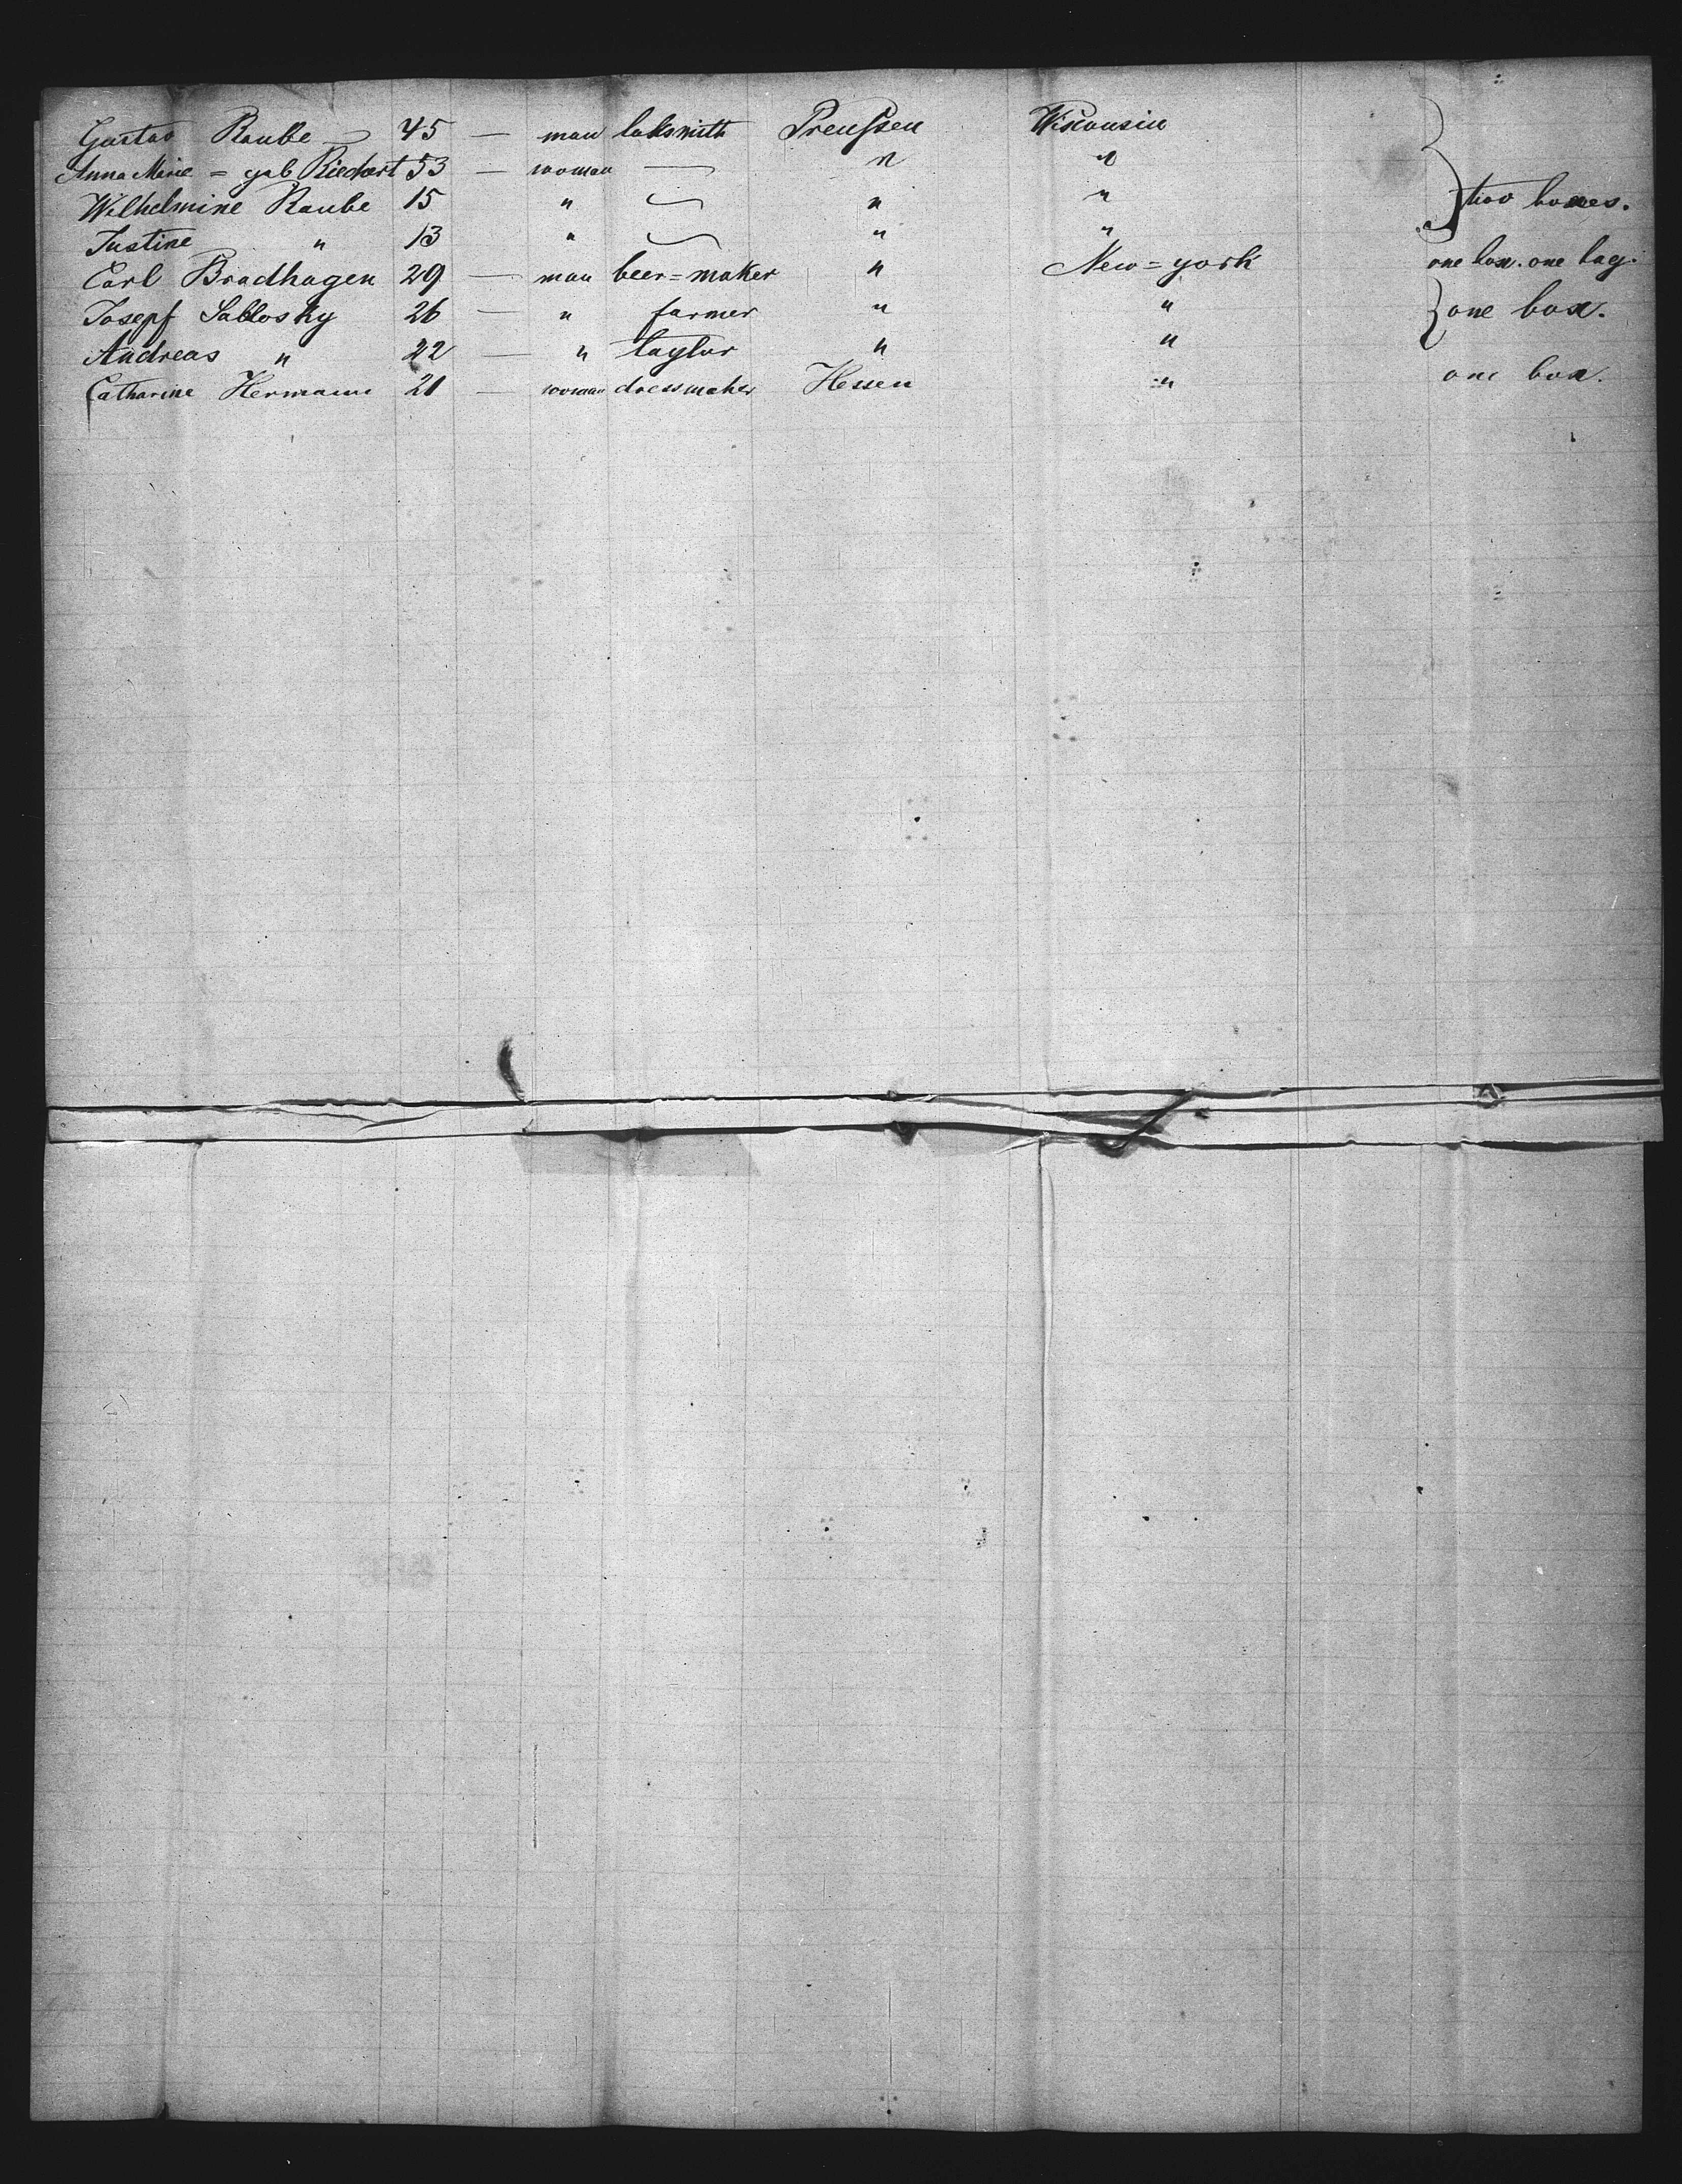 Gustav Raube 45 — man loksmith Preußen Wisconsin
Anna Marie = geb Riechert 53 — woman — " "
Wilhelmine Raube 15 " — " " } two boxes.
Justine " 13 " — " "
Carl Bradhagen 29 — man beer=maker " New=york one box. one bag.
Josepf Sablosky 26 — " farmer " " } one box.
Andreas " 22 — " taylor " "
Catharine Hermann 21 — woman dressmaker Hessen " one box.